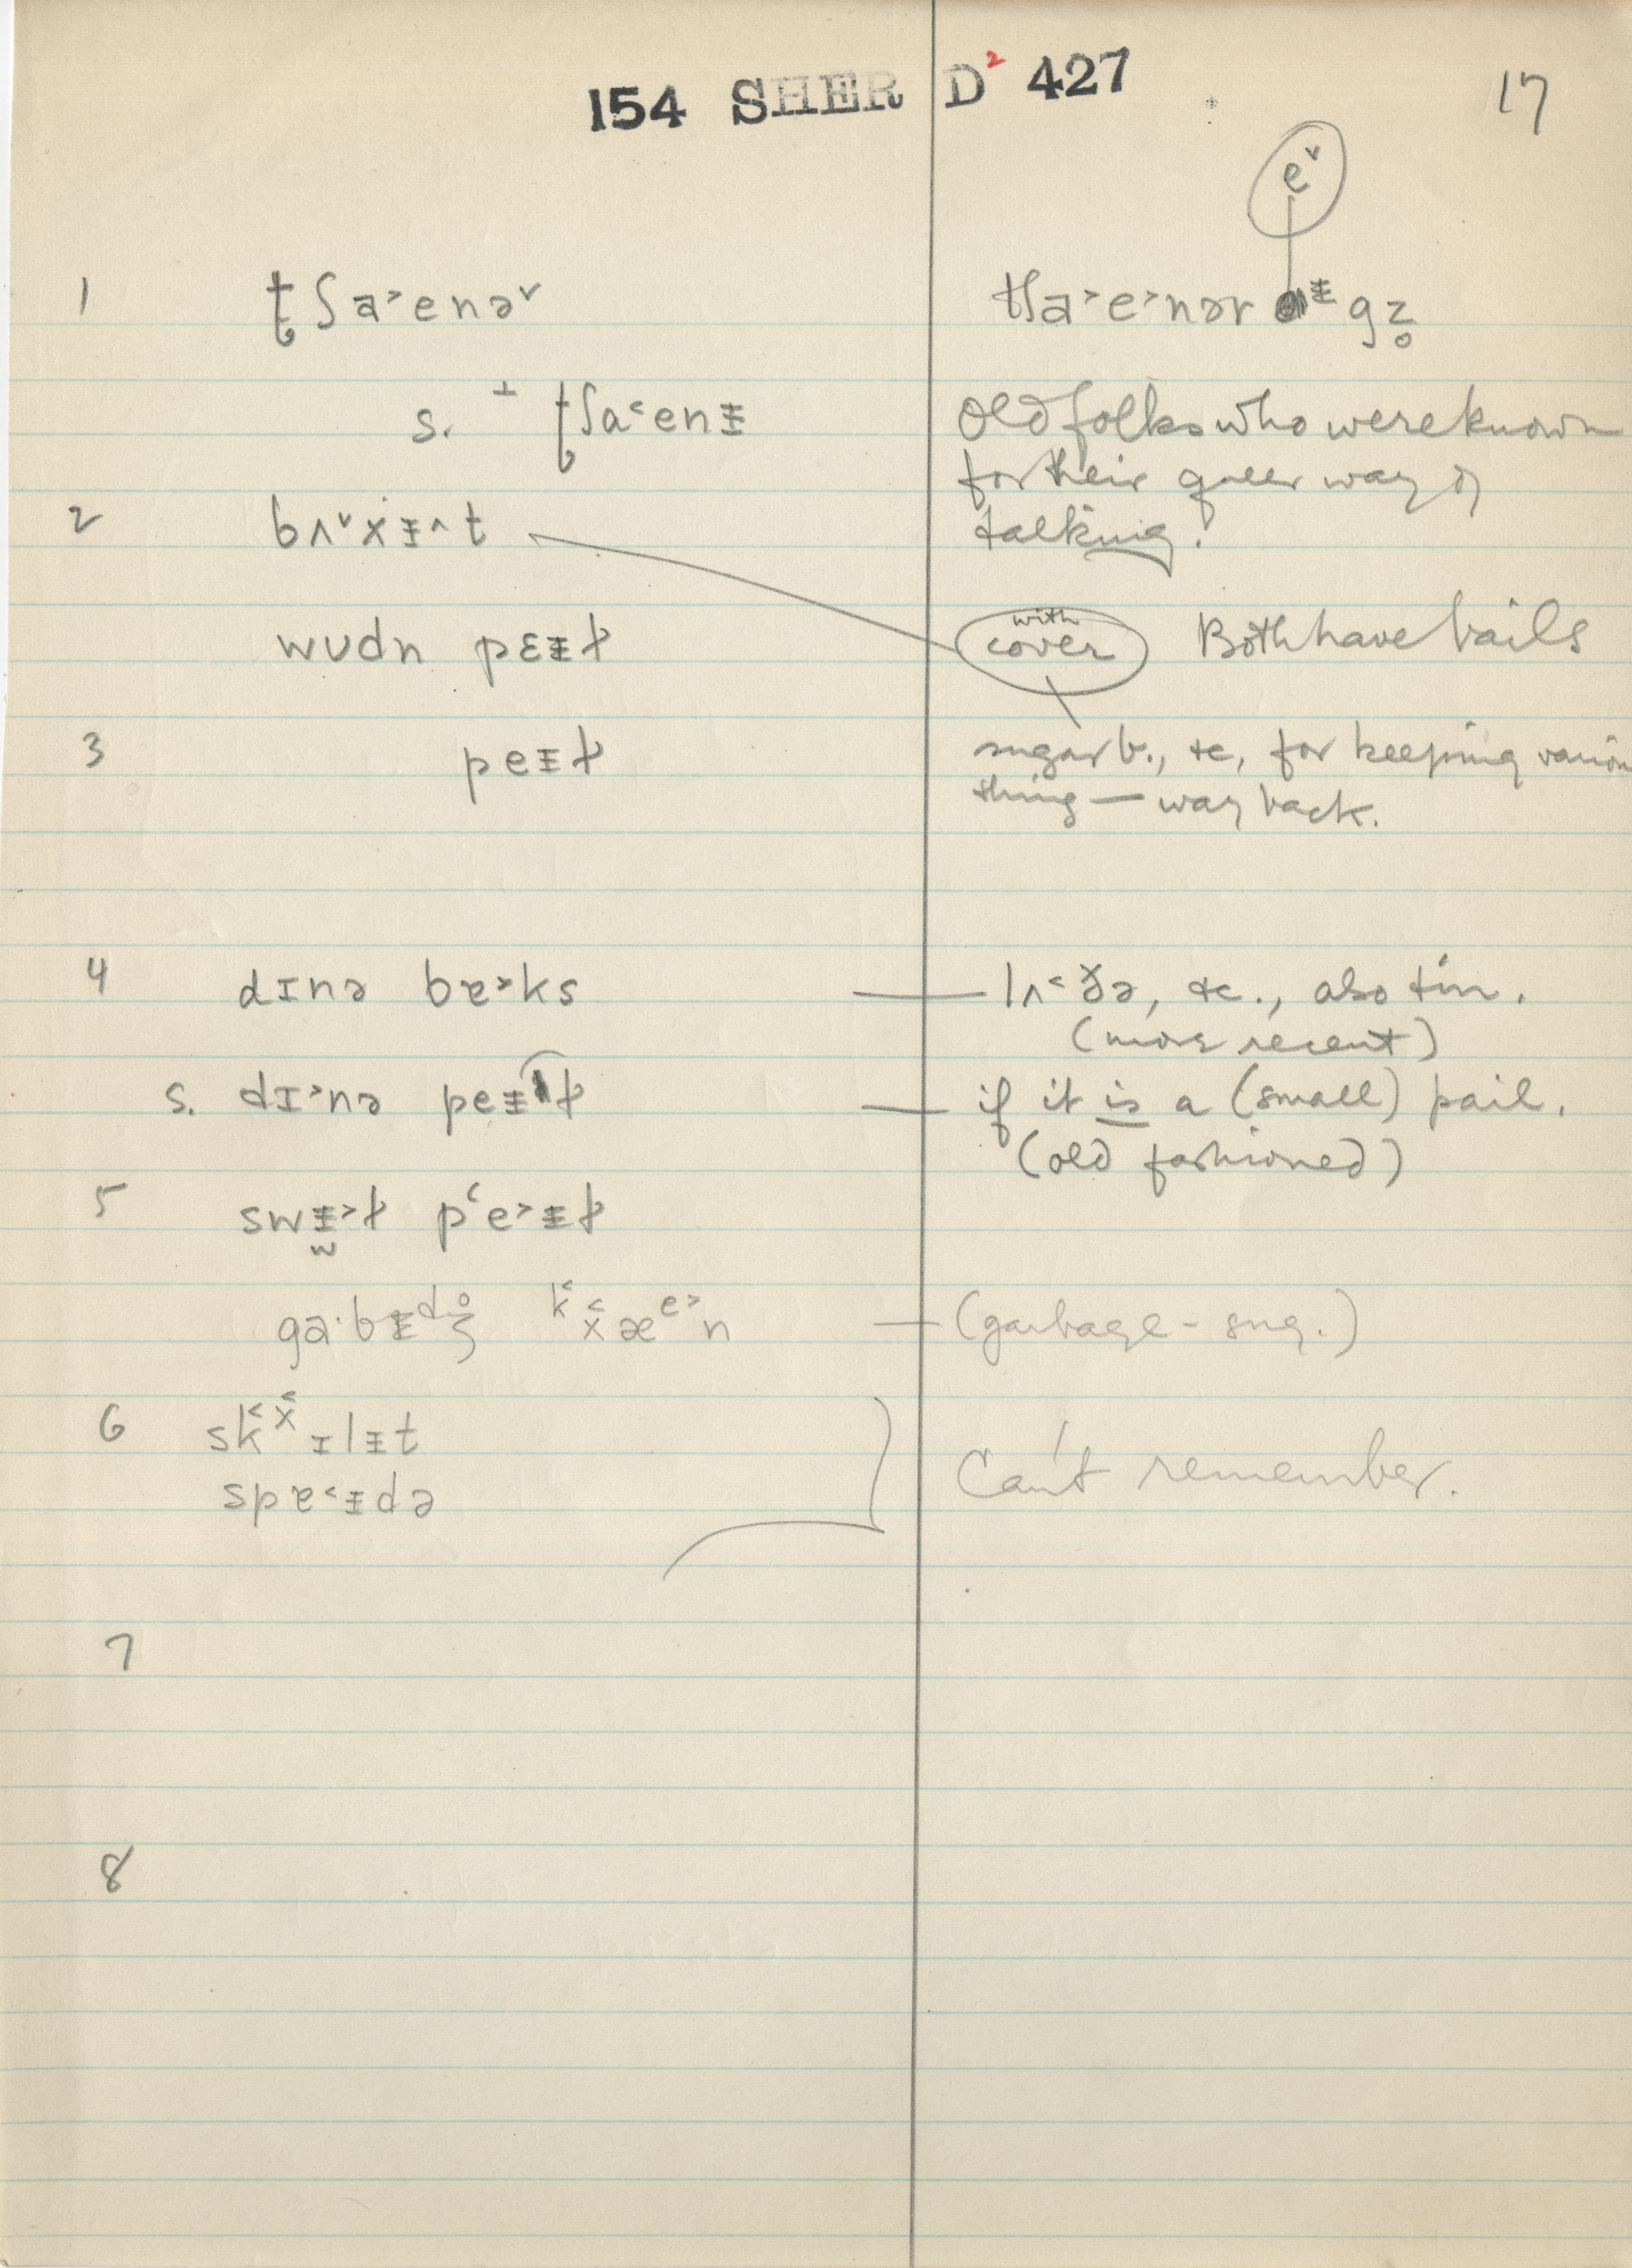 154 SHER D² 427
17
eˇ
1 t̢ʃa˃enəˇ
tʃa˃e˃nər ᵻgz̥
s. ⊥ t̢ʃa˂enᵻ
Old folks who were known
for their queer way of
talking!
2 bʌˇẋᵻ^t
wʊdn pɛᵻɫ
with
cover
Both have bails
3 peᵻɫ
sugar b., &c, for keeping
thing — way back.
4 dɪnə bɐ˃ks — lʌ˂ðə, &c., also tin.
(more recent)
s. dɪ˃nə peᵻɫ — if it is a (small) pail.
(old fashioned)
5 swᵻ˃ɫ pʻe˃ᵻɫ
gaˑbᵻdʒ̊ k˂x̯æe˃n — (garbage - sug.)
6 sk˂x̯ɪlᵻt
spɐ˂ᵻdə
Can't remember.
7
8